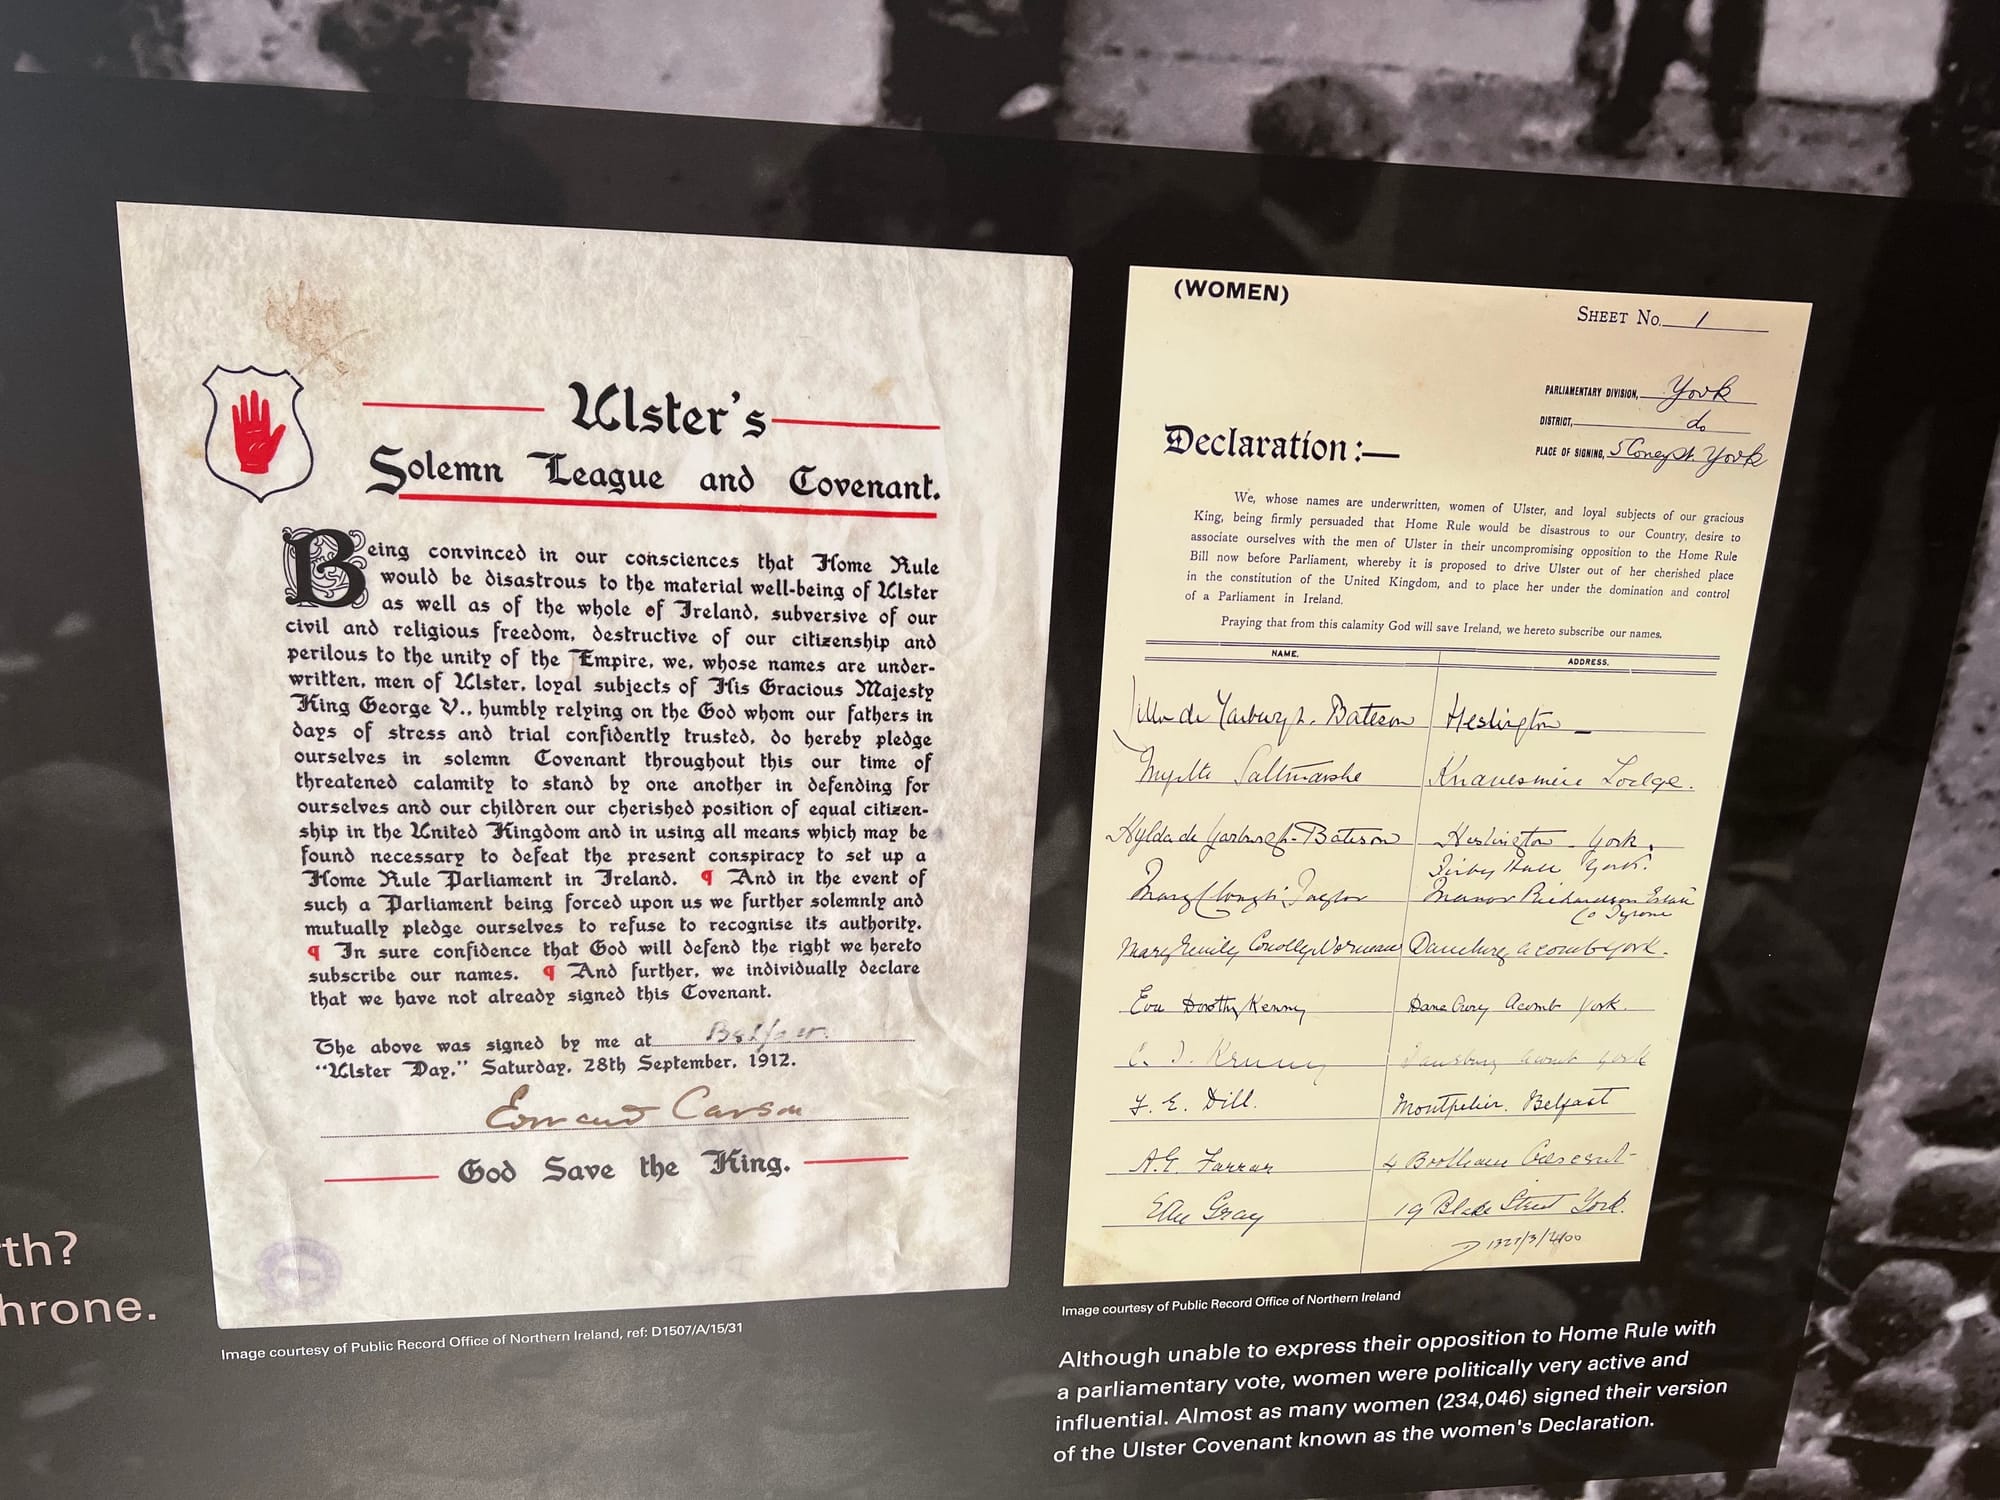 th?
hrone.
Ulster's
Solemn League and Covenant.
Being convinced in our consciences that Home Rule
would be disastrous to the material well-being of Ulster
as well as of the whole of Ireland, subversive of our
civil and religious freedom, destructive of our citizenship and
perilous to the unity of the Empire, we, whose names are under-
written, men of Ulster, loyal subjects of His Gracious Majesty
King George V., humbly relying on the God whom our fathers in
days of stress and trial confidently trusted, do hereby pledge
ourselves in solemn Covenant throughout this our time of
threatened calamity to stand by one another in defending for
ourselves and our children our cherished position of equal citizen-
ship in the United Kingdom and in using all means which may be
found necessary to defeat the present conspiracy to set up a
Home Rule Parliament in Ireland. ¶ And in the event of
such a Parliament being forced upon us we further solemnly and
mutually pledge ourselves to refuse to recognise its authority.
¶ In sure confidence that God will defend the right we hereto
subscribe our names. ¶ And further, we individually declare
that we have not already signed this Covenant.
The above was signed by me at Belfast.
"Ulster Day," Saturday, 28th September, 1912.
Edward Carson
God Save the King.
Image courtesy of Public Record Office of Northern Ireland, ref: D1507/A/15/31
(WOMEN)
SHEET No. 1
PARLIAMENTARY DIVISION, York
DISTRICT, do
PLACE OF SIGNING, Stoney St. York
Declaration:—
We, whose names are underwritten, women of Ulster, and loyal subjects of our gracious
King, being firmly persuaded that Home Rule would be disastrous to our Country, desire to
associate ourselves with the men of Ulster in their uncompromising opposition to the Home Rule
Bill now before Parliament, whereby it is proposed to drive Ulster out of her cherished place
in the constitution of the United Kingdom, and to place her under the domination and control
of a Parliament in Ireland.
Praying that from this calamity God will save Ireland, we hereto subscribe our names.
NAME. ADDRESS.
de Yarburgh. Bateson Heslington
Saltmarshe Knavesmire Lodge.
Hylda de Yarburgh-Bateson Heslington York.
Kirby Hall York.
Mary Taylor Manor
Co Tyrone
Mary Emily Conolly Norman Acomb York.
Eva Dorothy Kenny Acomb York.
Kenny Acomb York
F. E. Dill. Montpelier. Belfast
A.G. Farrar 4 Crescent
Gray 19 Blake Street York.
D 1327/3/2100
Image courtesy of Public Record Office of Northern Ireland
Although unable to express their opposition to Home Rule with
a parliamentary vote, women were politically very active and
influential. Almost as many women (234,046) signed their version
of the Ulster Covenant known as the women's Declaration.